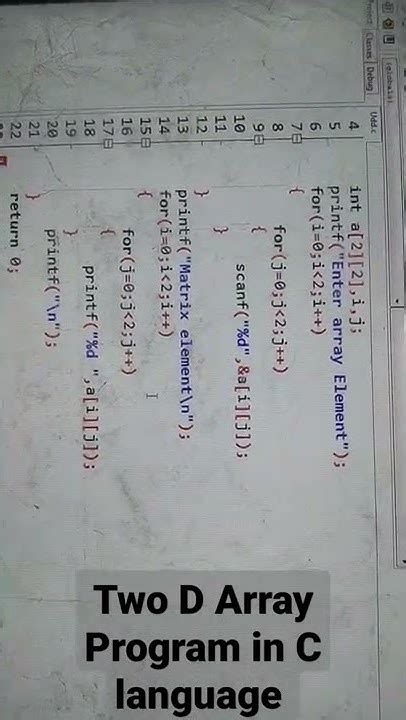 (globals)
Project Classes Debug
Udd.c
4 int a[2][2],i,j;
5 printf("Enter array Element");
6 for(i=0;i<2;i++)
7 {
8 for(j=0;j<2;j++)
9 {
10 scanf("%d",&a[i][j]);
11 }
12 }
13 printf("Matrix element\n");
14 for(i=0;i<2;i++)
15 {
16 for(j=0;j<2;j++)
17 {
18 printf("%d ",a[i][j]);
19 }
20 printf("\n");
21 }
22 return 0;
Two D Array
Program in C
language